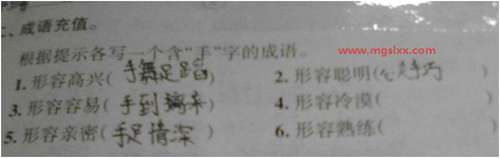 二、成语充值。
根据提示各写一个含“手”字的成语。
www.mgslxx.com
1. 形容高兴(手舞足蹈) 2. 形容聪明(心灵手巧)
3. 形容容易(手到擒来) 4. 形容冷漠( )
5. 形容亲密(手足情深) 6. 形容熟练( )